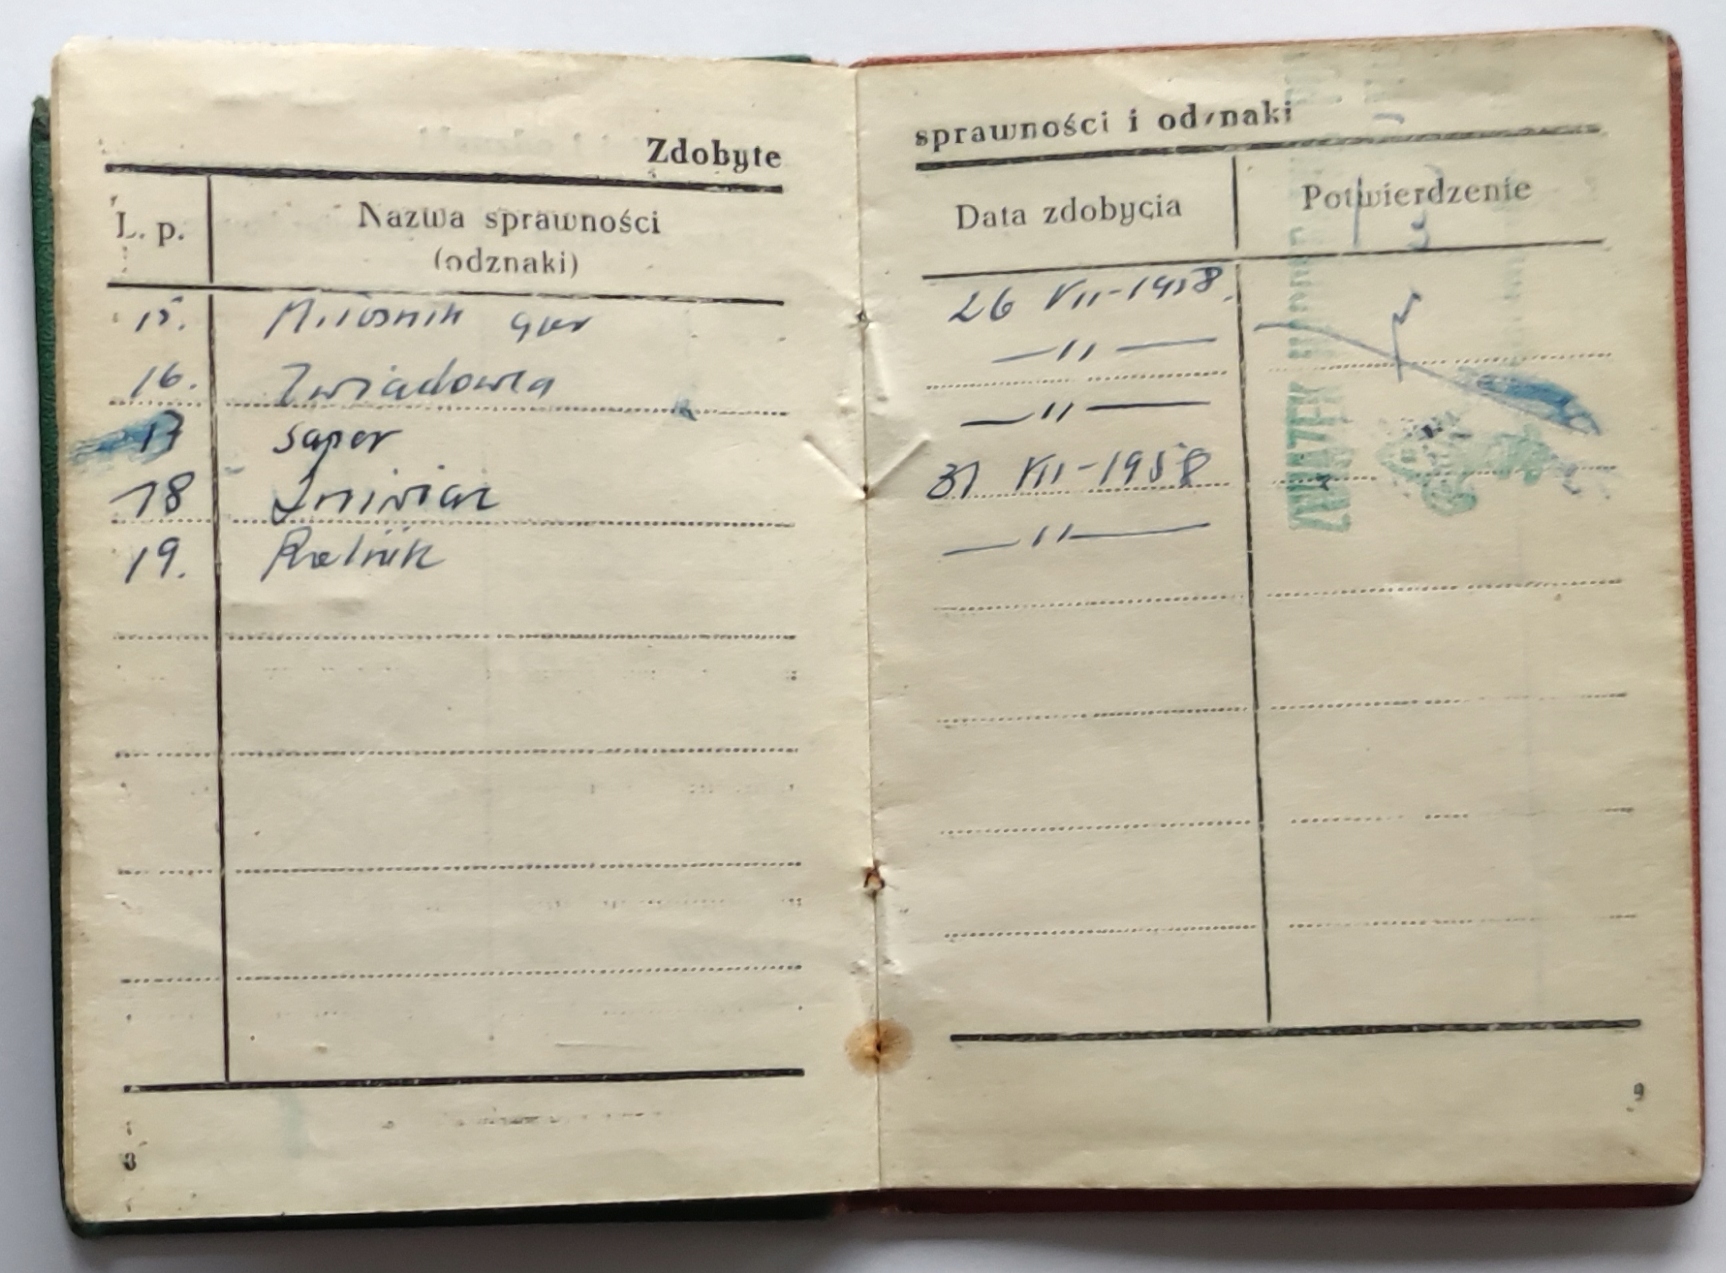 Zdobyte sprawności i odznaki
L. p. Nazwa sprawności Data zdobycia Potwierdzenie
(odznaki)
15. Miłośnik gier 26 VII-1958.
16. Zwiadowca —"—
17 saper —"—
18 31 VII-1958
19. —"—
ZWIĄZEK
8
9